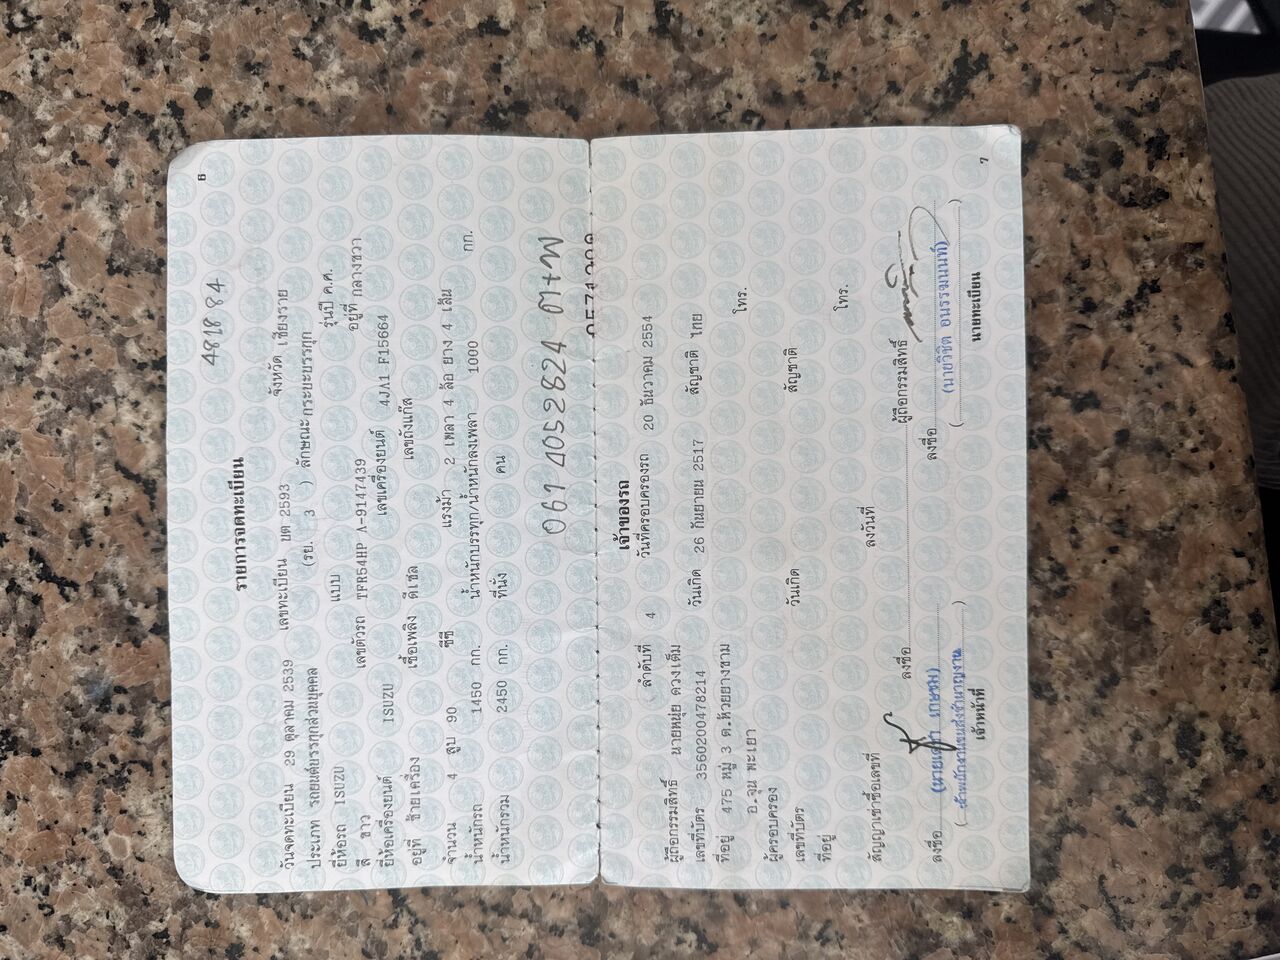 6
481884
รายการจดทะเบียน
วันจดทะเบียน 29 ตุลาคม 2539 เลขทะเบียน บต 2593 จังหวัด เชียงราย
ประเภท รถยนต์บรรทุกส่วนบุคคล (รย. 3 ) ลักษณะ กระบะบรรทุก
ยี่ห้อรถ ISUZU แบบ รุ่นปี ค.ศ.
สี ขาว เลขตัวรถ TFR54HP A-9147439 อยู่ที่ กลางขวา
ยี่ห้อเครื่องยนต์ ISUZU เลขเครื่องยนต์ 4JA1 F15664
อยู่ที่ ซ้ายเครื่อง เชื้อเพลิง ดีเซล เลขถังแก๊ส
จำนวน 4 สูบ 90 ซีซี แรงม้า 2 เพลา 4 ล้อ ยาง 4 เส้น
น้ำหนักรถ 1450 กก. น้ำหนักบรรทุก/น้ำหนักลงเพลา 1000 กก.
น้ำหนักรวม 2450 กก. ที่นั่ง คน
061 4052824
เจ้าของรถ
ลำดับที่ 4 วันที่ครอบครองรถ 20 ธันวาคม 2554
ผู้ถือกรรมสิทธิ์ นายหนุ่ย ดวงเต็ม
เลขที่บัตร 3560200478214 วันเกิด 26 กันยายน 2517 สัญชาติ ไทย
ที่อยู่ 475 หมู่ 3 ต.ห้วยยางขาม
อ.จุน พะเยา โทร.
ผู้ครอบครอง
เลขที่บัตร วันเกิด สัญชาติ
ที่อยู่ โทร.
สัญญาเช่าซื้อเลขที่ ลงวันที่
ลงชื่อ ผู้ถือกรรมสิทธิ์
ลงชื่อ ลงชื่อ
(นายวิชิต อนรรฆมนท์)
เจ้าหน้าที่ นายทะเบียน
7